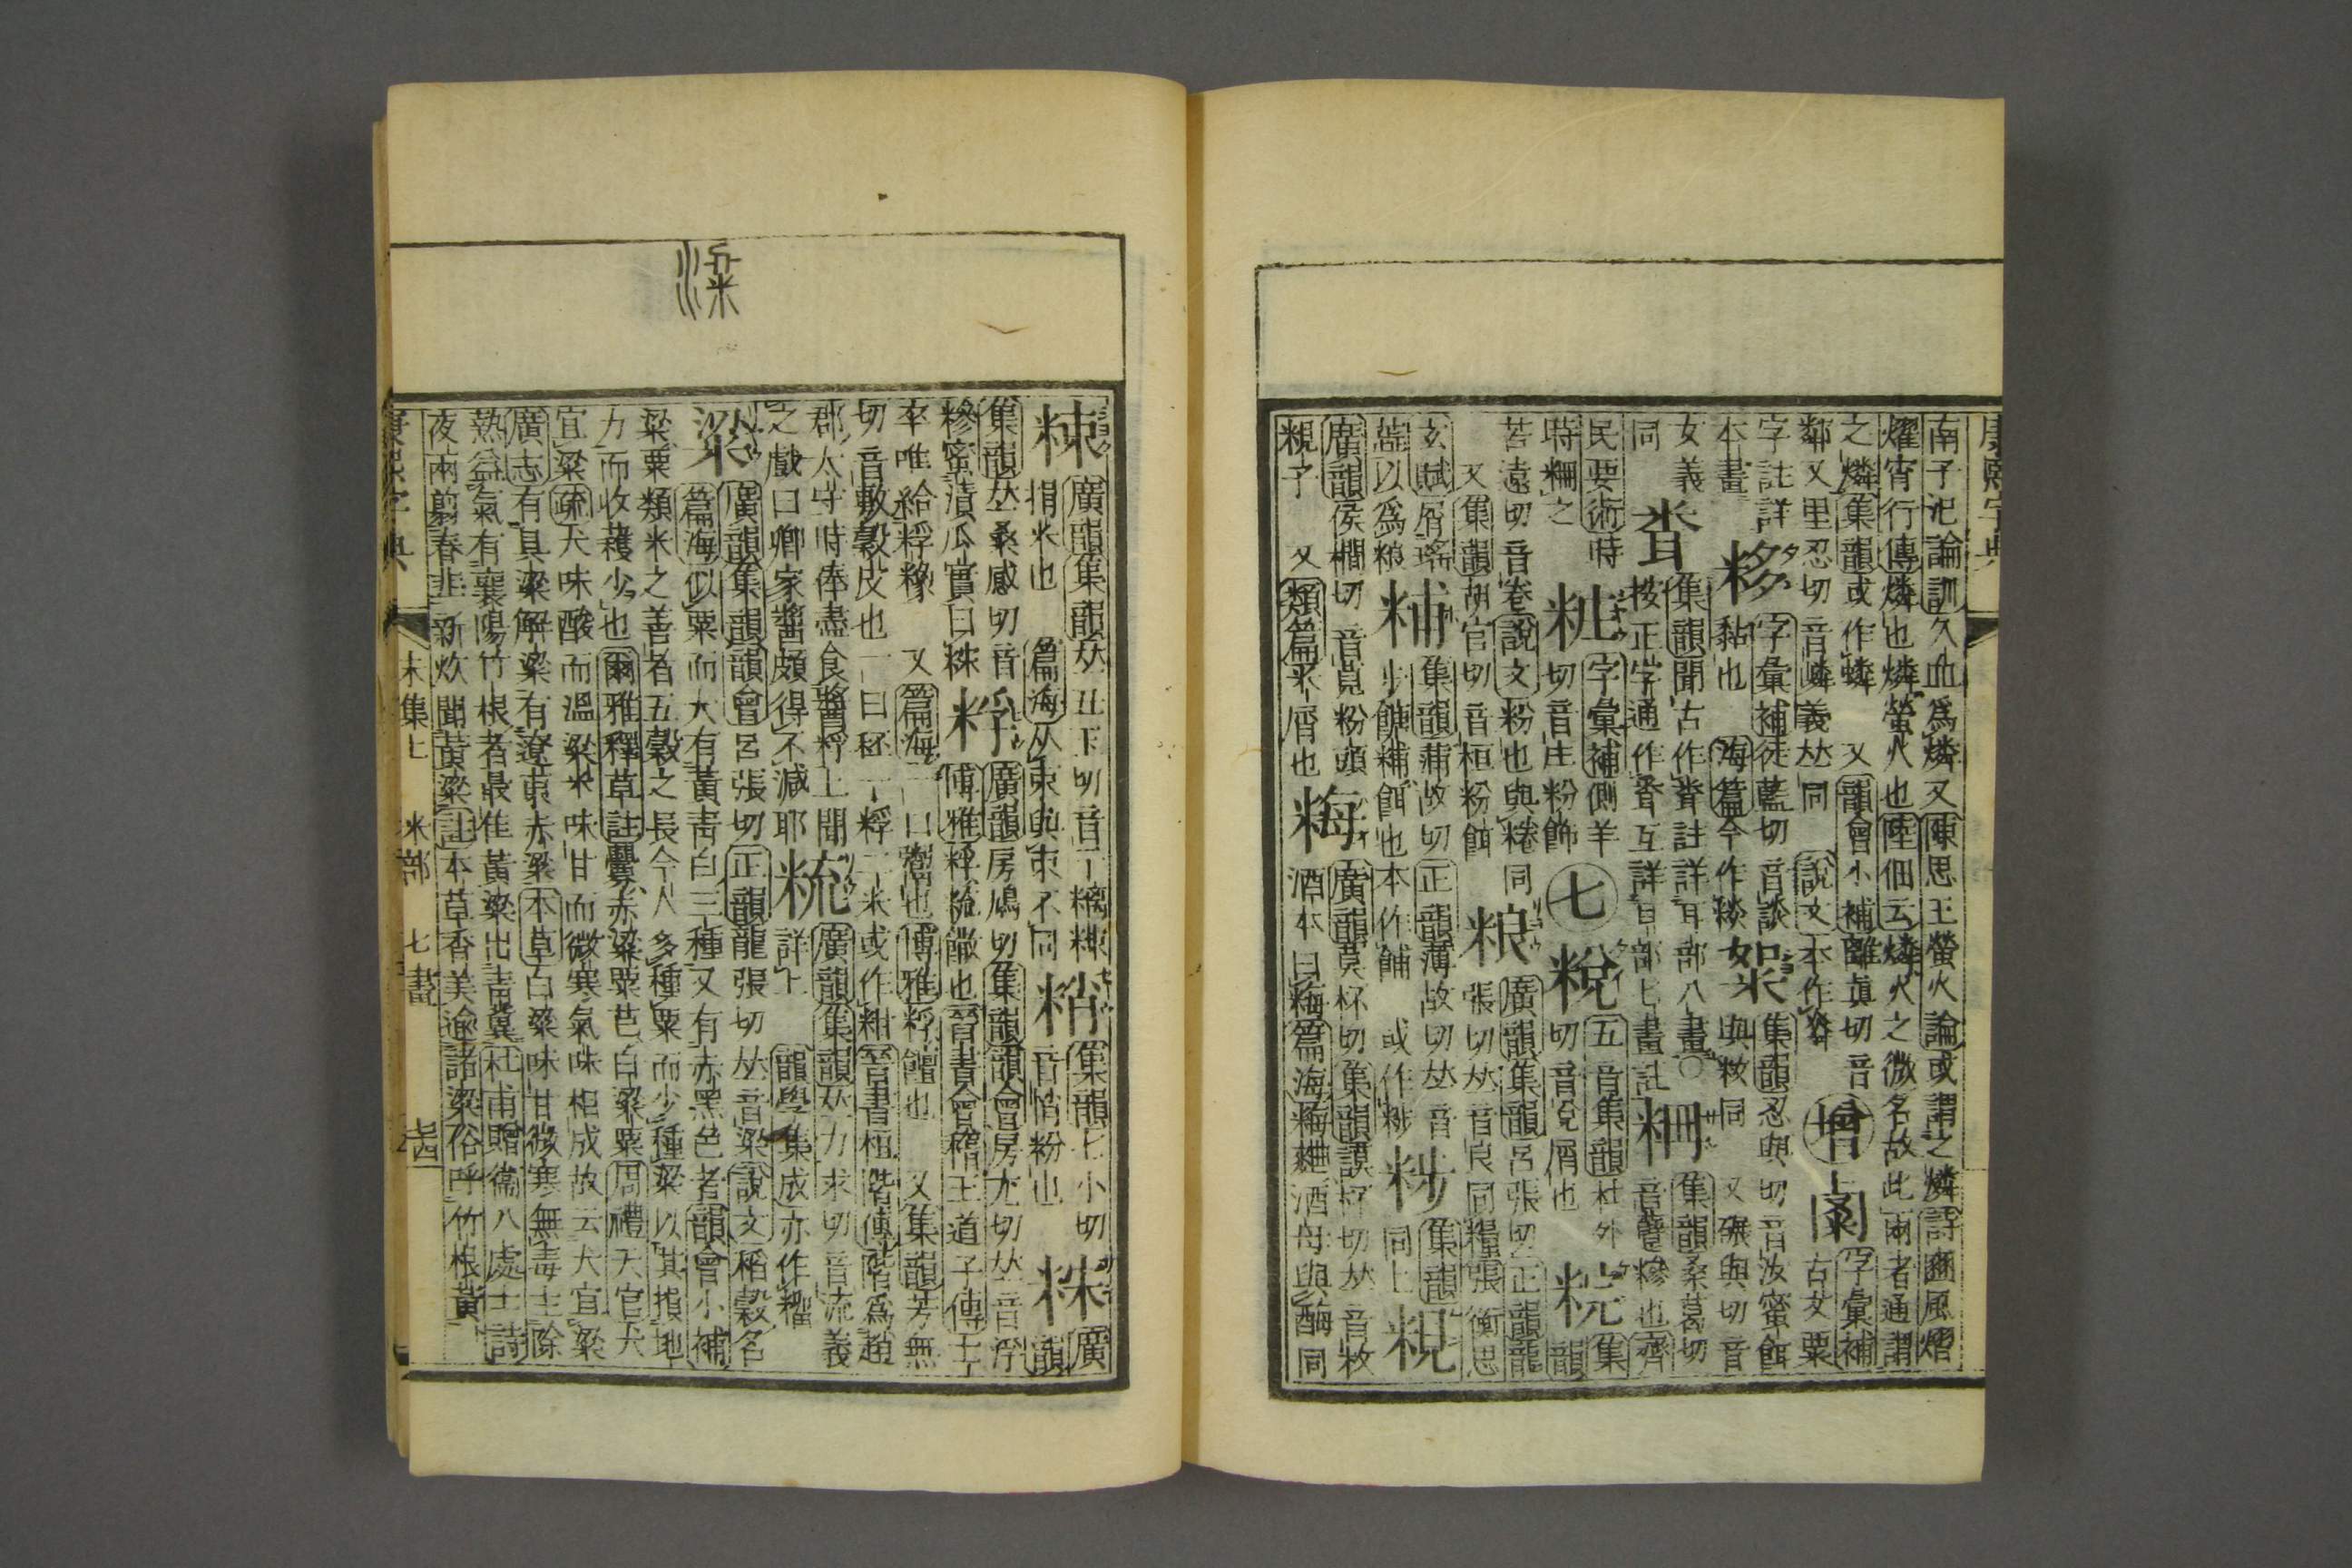 康熙字典
南子氾論訓久血爲燐又陳思王螢火論或謂之燐詩豳風熠
燿宵行傳燐也燐螢火也陸佃云燐火之微名故此兩者通謂
之燐集韻或作蟒 又韻會小補離眞切音
鄰又里忍切音嶙義𠀤同 說文本作粦 增 古文粟 字彙補
字註詳 字彙補徒藍切音談 集韻忍與切音汝蜜餌
本畫 黏也 海篇今作糉 絮 與籹同 又碾與切音
女義 集韻聞古作䏽註詳耳部八畫〇 集韻桑葛切
同 按正字通作䏽互詳目部七畫註 粣 音躠糝也齊
民要術時 字彙補側羊 七 五音集韻杜外 集
時粣之 粧 切音庄粉飾 切音兌屑也 韻
苦遠切音綣說文粉也與䊎同 廣韻集韻呂張切正韻龍
又集韻胡官切音桓粉餌 粮 張切𠀤音良同糧張衡思
玄賦屑瑤 集韻蒲故切正韻薄故切𠀤音步 集韻
蘂以爲粮 䊇 步餔䊇餌也本作餔 或作䊇 同上 粯
廣韻侯襉切音莧粉頭 廣韻莫杯切集韻謨杯切𠀤音枚
粯子 又類篇米屑也 䊈 酒本曰䊈篇海䊈麯酒母與酶同
廣韻集韻𠀤丑下切音 集韻七小切 廣
粡 捐米也 篇海从束與柬不同 䊥 音悄粉也 粖 韻
集韻𠀤桑感切音 廣韻房鳩切集韻韻會房尤切𠀤音浮
糝蜜漬瓜實曰粖 粰 博雅粰梳饊也晉書會稽王道子傳王
卒唯給粰橡 又篇海一曰鬻也博雅粰饘也 又集韻芳無
切音敷穀皮也一曰秠一粰二米或作䊧晉書桓階傳階爲趙
郡太守時俸盡食醬粰上聞 廣韻集韻𠀤力求切音流義
之戲曰卿家醬頗得不減耶 䊂 詳上 韻學集成亦作䊂
粱 廣韻集韻韻會呂張切正韻龍張切𠀤音梁說文稻穀名
篇海似粟而大有黃靑白三種又有赤黑色者韻會小補
粱粟類米之善者五穀之長今人多種粟而少種粱以其損地
力而收穫少也爾雅釋草註虋赤粱粟芑白粱粟周禮天官犬
宜粱疏犬味酸而溫粱米味甘而微寒氣味相成故云犬宜粱
廣志有具粱解粱有遼東赤粱本草白粱味甘微寒無毒主除
熱益氣有襄陽竹根者最佳黃粱出靑冀杜甫贈衞八處士詩
夜雨剪春韭新炊聞黃粱註本草香美逾諸粱俗呼竹根黃
康熙字典 未集上 米部 七畫 古